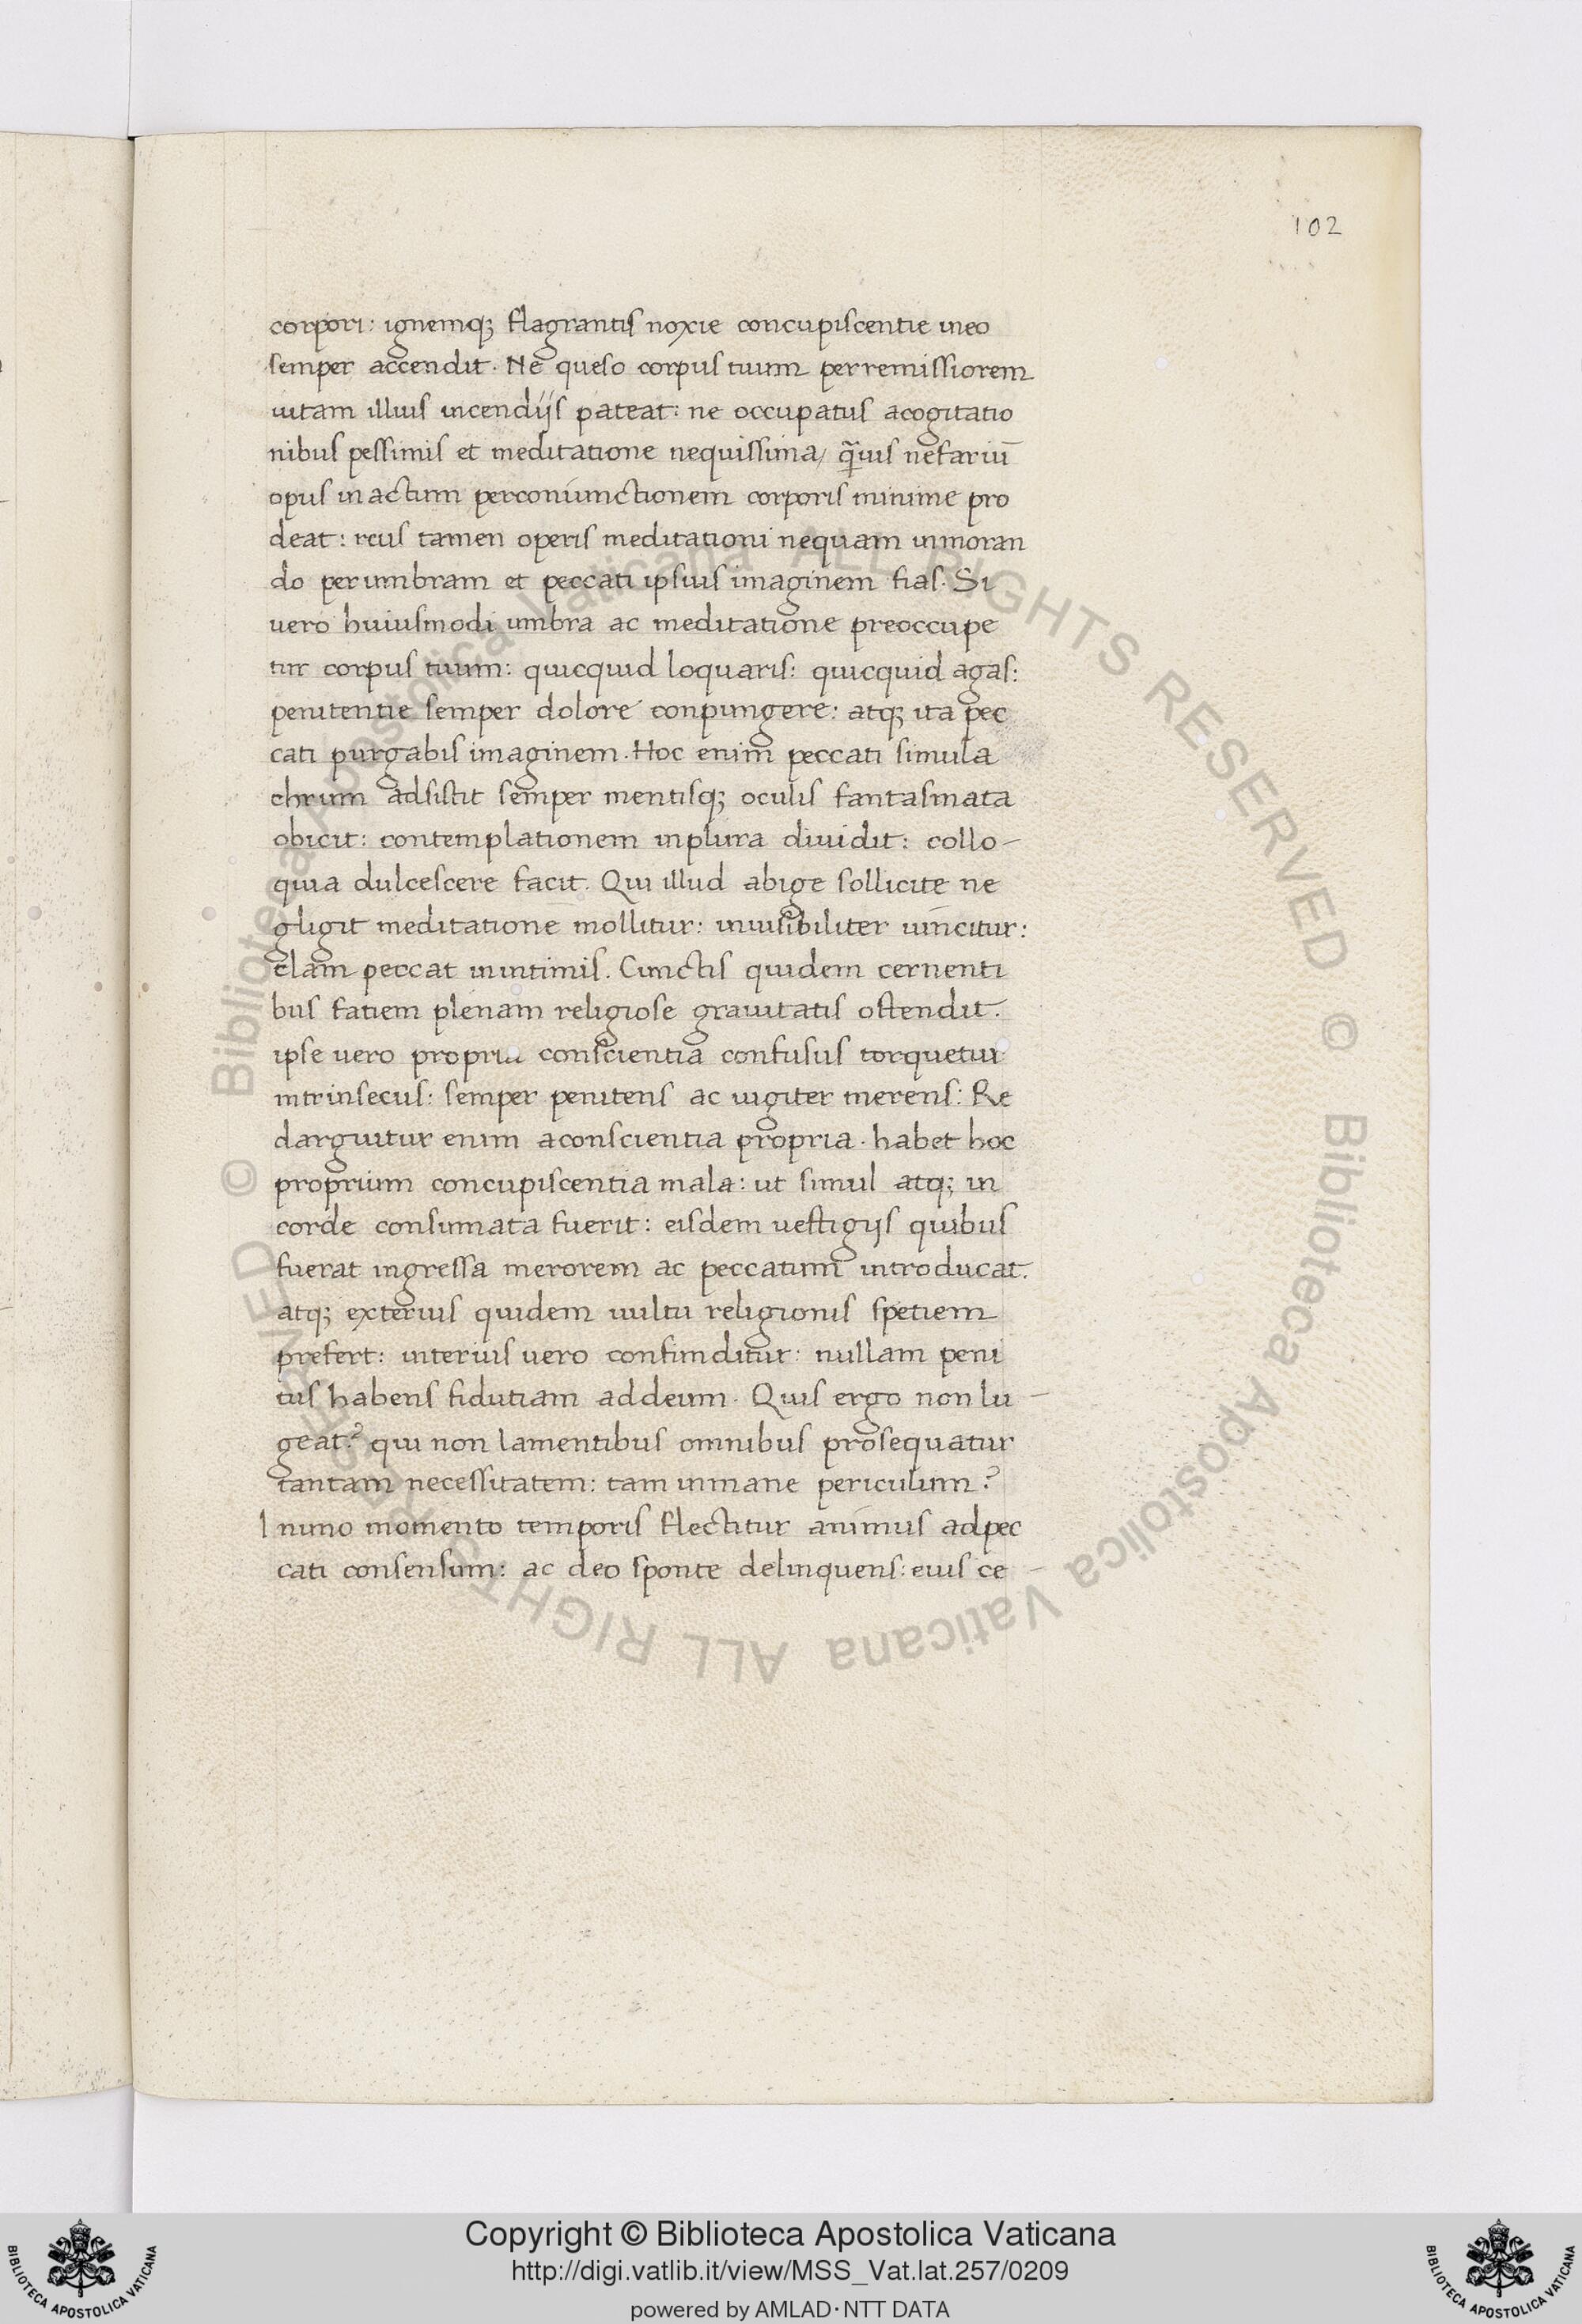 102
corpori: ignemq; flagrantis noxie concupiscentie ineo
semper accendit. Ne queso corpus tuum perremissiorem
uitam illius incendijs pateat: ne occupatus acogitatio
nibus pessimis et meditatione nequissima/ q̃uis nefariũ
opus in actum perconiunctionem corporis minime pro
deat: reus tamen operis meditationi nequam inmoran
do per umbram et peccati ipsius imaginem fias. Si
uero huiusmodi umbra ac meditatione preoccupe
tur corpus tuum: quicquid loquaris: quicquid agas:
penitentie semper dolore conpungere: atq; ita pec
cati purgabis imaginem. Hoc enim peccati simula
chrum adsistit semper mentisq; oculis fantasmata
obicit: contemplationem inplura diuidit: collo-
quia dulcescere facit. Qui illud abige sollicite ne
gligit meditatione mollitur: inuisibiliter uincitur:
clam peccat inintimis. Cunctis quidem cernenti
bus fatiem plenam religiose grauitatis ostendit.
ipse uero propria conscientia confusus torquetur
intrinsecus: semper penitens ac iugiter merens: Re
darguitur enim aconscientia propria. habet hoc
proprium concupiscentia mala: ut simul atq; in
corde consumata fuerit: eisdem uestigijs quibus
fuerat ingressa merorem ac peccatum introducat.
atq; exterius quidem uultu religionis spetiem
prefert: interius uero confunditur: nullam peni
tus habens fidutiam addeum. Quis ergo non lu-
geat? qui non lamentibus omnibus prosequatur
tantam necessitatem: tam inmane periculum?
I nuno momento temporis flectitur animus adpec
cati consensum: ac deo sponte delinquens: eius ce-
© Biblioteca Apostolica Vaticana ALL RIGHTS RESERVED © Biblioteca Apostolica Vaticana ALL RIGHTS RESERVED
Copyright © Biblioteca Apostolica Vaticana
http://digi.vatlib.it/view/MSS_Vat.lat.257/0209
powered by AMLAD·NTT DATA
BIBLIOTECA APOSTOLICA VATICANA
BIBLIOTECA APOSTOLICA VATICANA